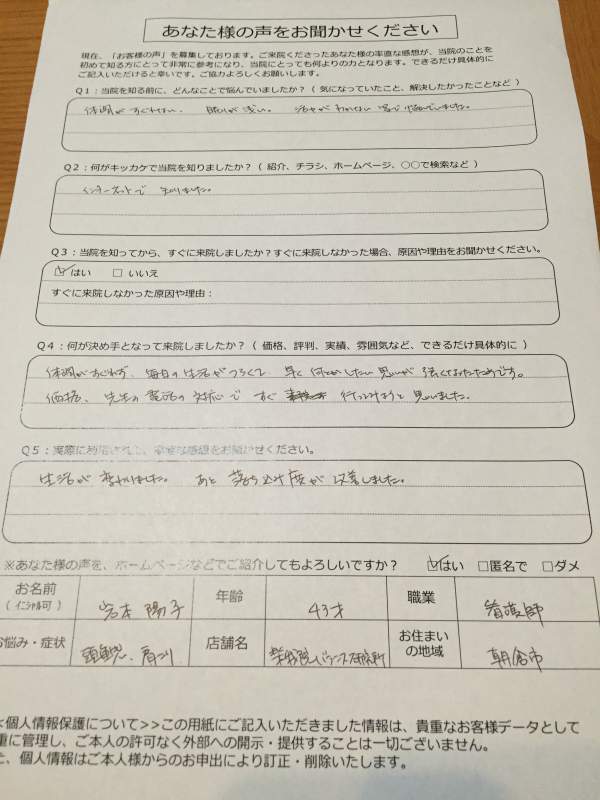 あなた様の声をお聞かせください
現在、「お客様の声」を募集しております。ご来院くださったあなた様の率直な感想が、当院のことを
初めて知る方にとって非常に参考になり、当院にとっても何よりの力となります。できるだけ具体的に
ご記入いただけると幸いです。ご協力よろしくお願いします。
Q1：当院を知る前に、どんなことで悩んでいましたか？（ 気になっていたこと、解決したかったことなど ）
体調がすぐれない、眠りが浅い。 悩んでいました。
Q2：何がキッカケで当院を知りましたか？（ 紹介、チラシ、ホームページ、○○で検索など ）
インターネットで 知りました。
Q3：当院を知ってから、すぐに来院しましたか？すぐに来院しなかった場合、原因や理由をお聞かせください。
☑はい □ いいえ
すぐに来院しなかった原因や理由：
Q4：何が決め手となって来院しましたか？（ 価格、評判、実績、雰囲気など、できるだけ具体的に ）
体調がすぐれず、毎日の生活がつらくて、早く何とかしたい思いが強くなったためです。
価格、先生の電話の対応で すぐ 行ってみようと思いました。
Q5：実際に利用されて、率直な感想をお聞かせください。
生活が変わりました。あと 落ち込み度が 改善しました。
※あなた様の声を、ホームページなどでご紹介してもよろしいですか？ ☑はい □匿名で □ダメ
お名前 岩本 陽子 年齢 43才 職業 看護師
（イニシャル可）
お悩み・症状 頭重感、肩コリ 店舗名 バランス研究所 お住まいの地域 朝倉市
<個人情報保護について>>この用紙にご記入いただきました情報は、貴重なお客様データとして
重に管理し、ご本人の許可なく外部への開示・提供することは一切ございません。
た、個人情報はご本人様からのお申出により訂正・削除いたします。